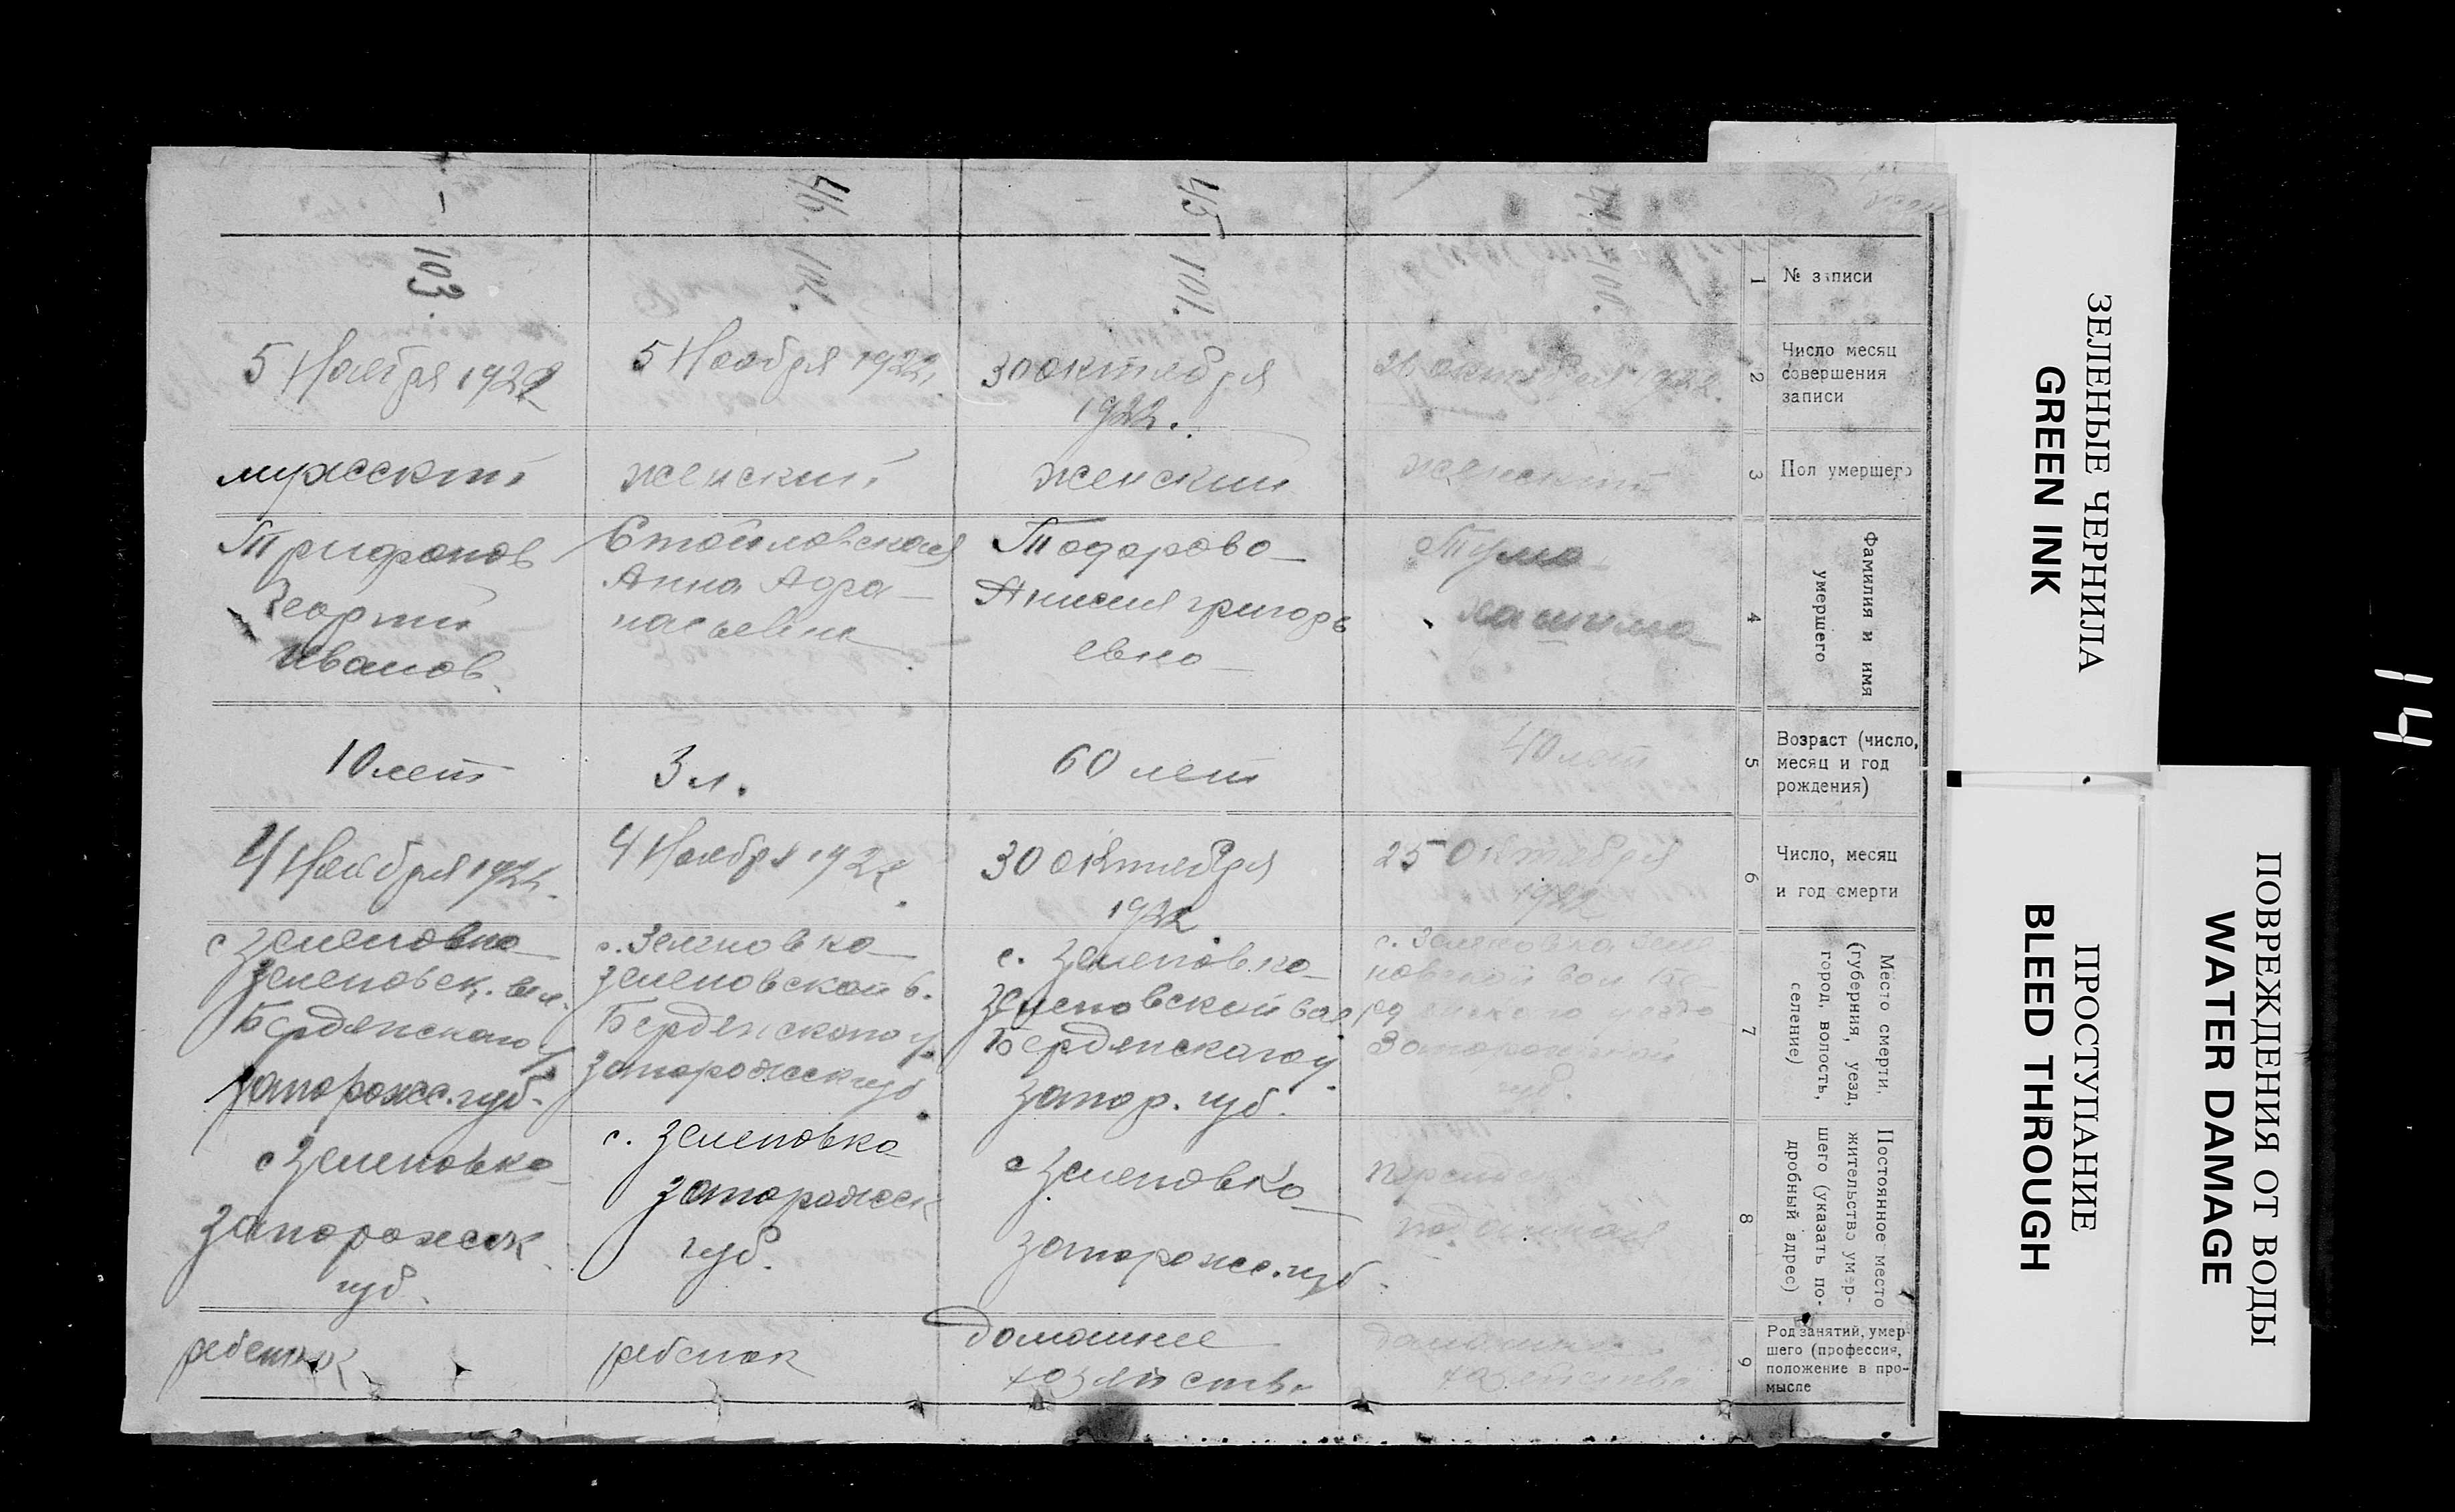 № записи
1
103.
102.
45
101.
100.
Число месяц
совершения
записи
2
5 Ноября 1922
5 Ноября 1922
30 октября
1922.
октября 1922.
Пол умершего
3
мужский
женский
женский
женский
Фамилия и имя
умершего
4
Трифонов
Георгий
Иванов
Стойловская
Анна Афа-
насьевна
Тодорова
Анисия Григорь
евна
Возраст (число,
месяц и год
рождения)
5
10 лет
3 л.
60 лет
40 лет
Число, месяц
и год смерти
6
4 Ноября 1922.
4 Ноября 1922.
30 октября
1922
25 Октября
1922
Место смерти.
(губерния, уезд,
город, волость,
селение)
7
с Зеленовка
Зеленовск. вол.
Бердянского у.
Запорожс. губ.
с. Зеленовка
Зеленовской в.
Бердянского у.
Запорожск губ
с. Зеленовка
Зеленовской вол
Бердянского у.
Запор. губ.
с. Зеленовка Зеле
новской вол Бе
рдянского уезда
Запорожской
губ.
Постоянное место
жительство умер-
шего (указать по-
дробный адрес)
8
с Зеленовка
Запорожск
губ.
с. Зеленовка
Запорожск
губ.
с Зеленовка
Запорожс. губ.
подданная
Род занятий, умер-
шего (профессия,
положение в про-
мысле
9
ребенок
ребенок
домашнее
хозяйство
домашнее
хозяйство
ЗЕЛЕНЫЕ ЧЕРНИЛА
GREEN INK
ПРОСТУПАНИЕ
BLEED THROUGH
ПОВРЕЖДЕНИЯ ОТ ВОДЫ
WATER DAMAGE
14